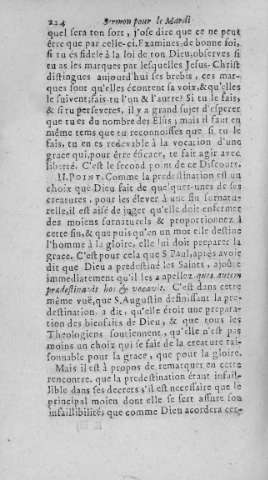 224 Sermon pour le Mardi
quel sera ton sort, j'ose dire que ce ne peut
être que par celle-ci. Examines de bonne foi,
si tu és fidéle à la loi de ton Dieu, observes si
tu as les marques par lesquelles Jesus-Christ
distingues aujourd'hui ses brebis, ces mar-
ques sont qu'elles écoutent sa voix, & qu'elles
le suivent; fais-tu l'un & l'autre? Si tu le fais,
& si tu perseveres, il y a grand sujet d'esperer
que tu es du nombre des Elûs; mais il faut en
même tems que tu reconnoisses que si tu le
fais, tu en es redevable à la vocation d'une
grace qui, pour être éficace, te fait agir avec
liberté. C'est le second point de ce Discours.
II. POINT. Comme la predestination est un
choix que Dieu fait de quelques-unes de ses
creatures, pour les élever à une fin surnatu-
relle, il est aisé de juger qu'elle doit enfermer
des moiens surnaturels & proportionnez à
cette fin, & que puis qu'en un mot elle destine
l'homme à la gloire, elle lui doit preparer la
grace. C'est pour cela que S. Paul, après avoir
dit que Dieu a predestiné les Saints, ajoûte
immediatement qu'il les a apellez quos autem
predestinavit hos & vocavit. C'est dans cette
même vûë, que S. Augustin definissant la pre-
destination a dit, qu'elle étoit une prepara-
tion des bienfaits de Dieu, & que tous les
Theologiens soutiennent, qu'elle n'est pas
moins un choix qui se fait de la creature rai-
sonnable pour la grace, que pour la gloire.
Mais il est à propos de remarquer en cette
rencontre, que la predestination étant infail-
lible dans ses decrets s'il est necessaire que le
principal moien dont elle se sert assure son
infaillibilité, que comme Dieu acordera cer-